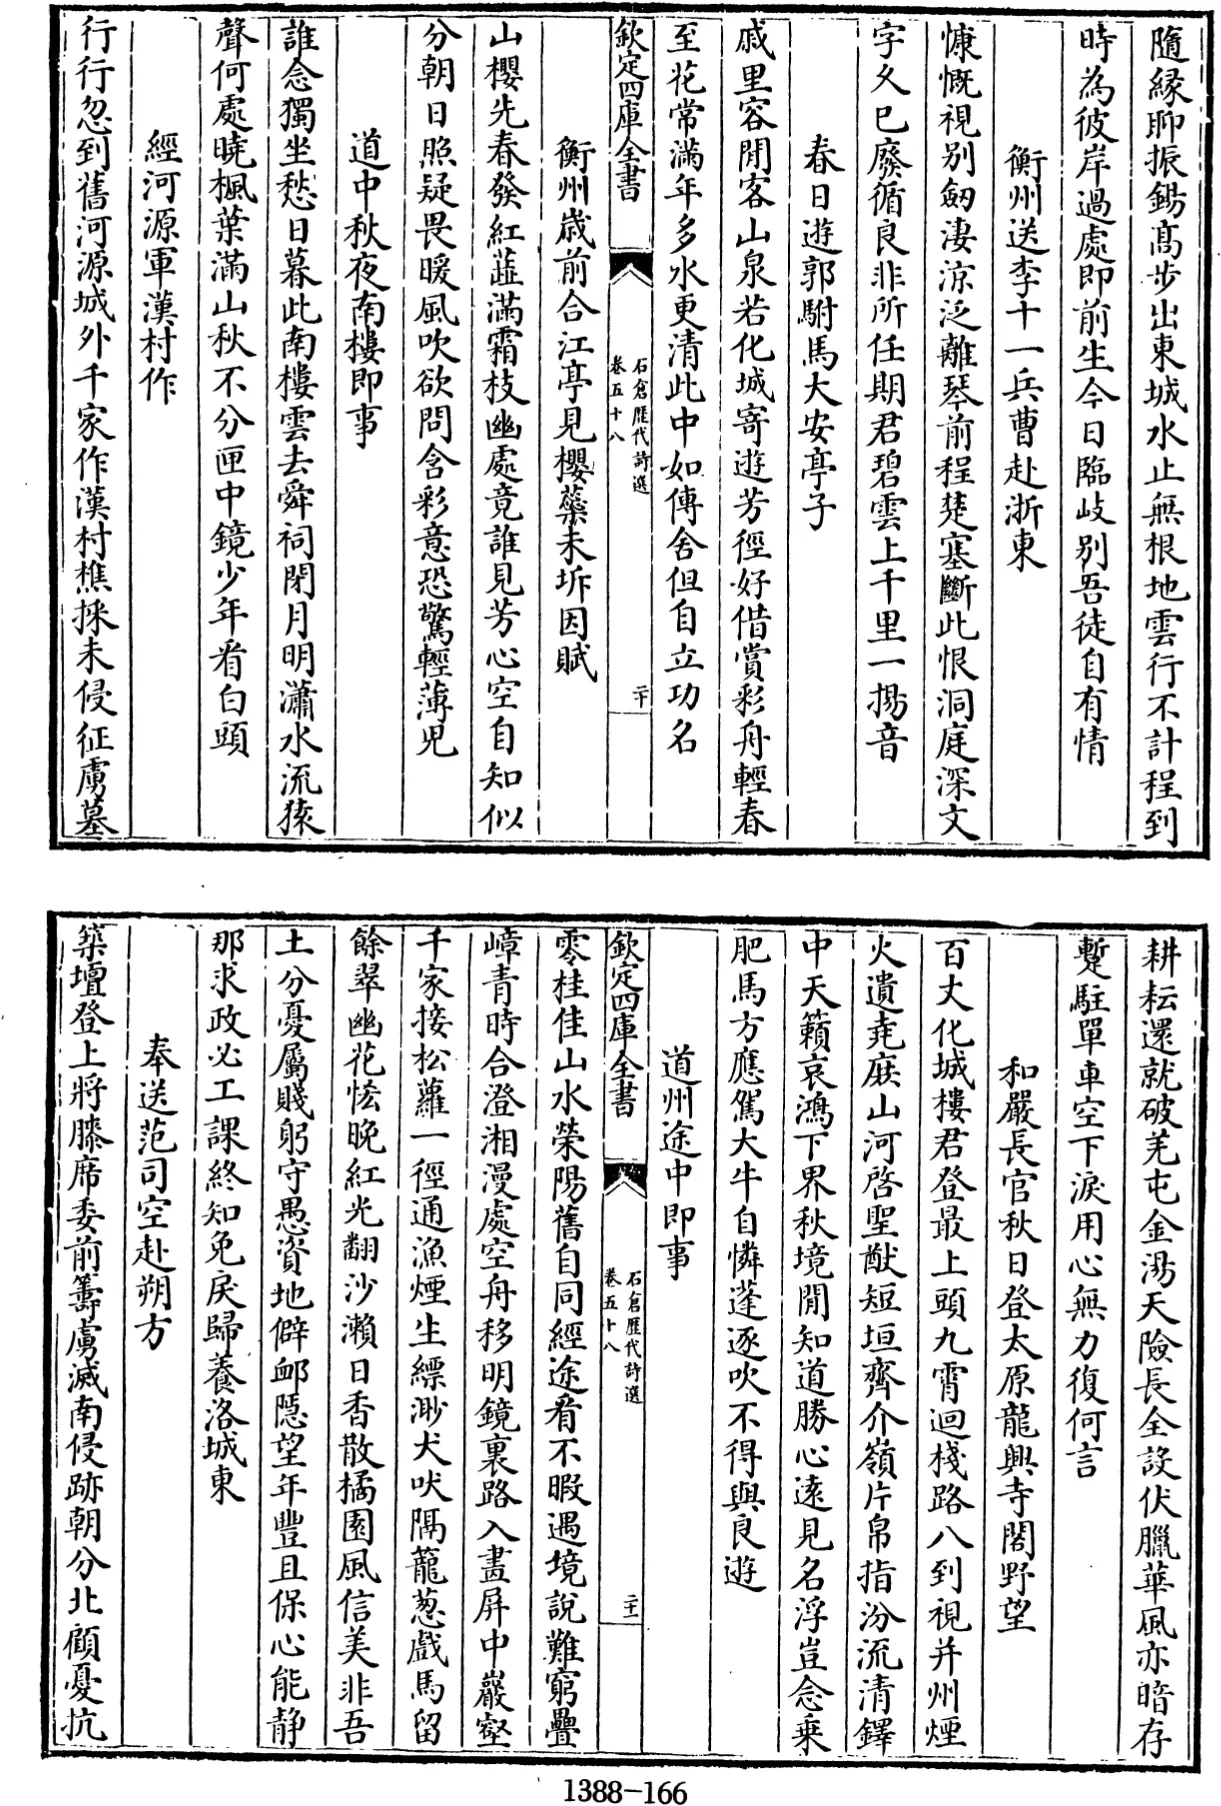 隨縁聊振錫髙步出東城水止無根地雲行不計程到
時為彼岸過處即前生今日臨岐别吾徒自有情
衡州送李十一兵曹赴浙東
慷慨視别劔淒涼泛離琴前程楚塞斷此恨洞庭深文
字久已廢循良非所任期君碧雲上千里一揚音
春日遊郭駙馬大安亭子
戚里容閒客山泉若化城寄遊芳徑好借賞彩舟輕春
至花常滿年多水更清此中如傳舍但自立功名
欽定四庫全書
石倉歷代詩選
卷五十八
二十
衡州嵗前合江亭見櫻蘂未坼因賦
山櫻先春發紅蘂滿霜枝幽處竟誰見芳心空自知似
分朝日照疑畏暖風吹欲問含彩意恐驚輕薄兒
道中秋夜南樓即事
誰念獨坐愁日暮此南樓雲去舜祠閉月明瀟水流猿
聲何處曉楓葉滿山秋不分匣中鏡少年看白頭
經河源軍漢村作
行行忽到舊河源城外千家作漢村樵採未侵征虜墓
耕耘還就破羌屯金湯天險長全設伏臘華風亦暗存
蹔駐單車空下淚用心無力復何言
和嚴長官秋日登太原龍興寺閣野望
百丈化城樓君登最上頭九霄迴棧路八到視并州煙
火遺堯庻山河啓聖猷短垣齊介嶺片帛指汾流清鐸
中天籟哀鴻下界秋境閒知道勝心逺見名浮豈念乗
肥馬方應駕大牛自憐蓬逐吹不得與良遊
道州途中即事
欽定四庫全書
石倉歷代詩選
卷五十八
二十一
零桂佳山水榮陽舊自同經途看不暇遇境說難窮疊
嶂青時合澄湘漫處空舟移明鏡裏路入畫屏中巖壑
千家接松蘿一徑通漁煙生縹渺犬吠隔蘢葱戲馬留
餘翠幽花恡晚紅光翻沙瀨日香散橘園風信美非吾
土分憂屬賤躬守愚資地僻䘏隠望年豐且保心能静
那求政必工課終知免戾歸養洛城東
奉送范司空赴朔方
築壇登上將膝席委前籌虜滅南侵跡朝分北顧憂抗
1388-166